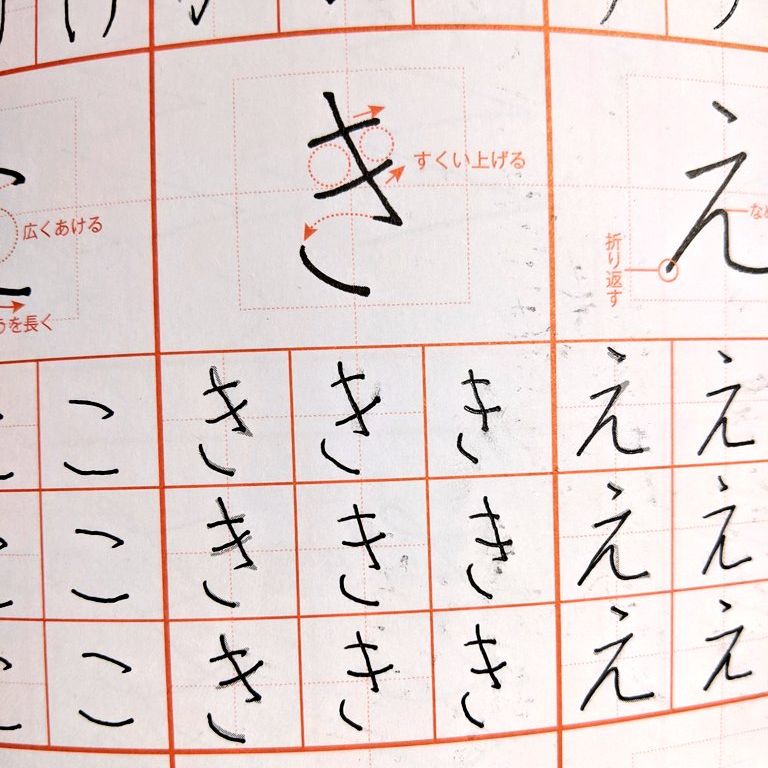 き
すくい上げる
広くあける
うを長く
え
折り返す
こ き き き え え
こ き き き え え
こ き き き え え